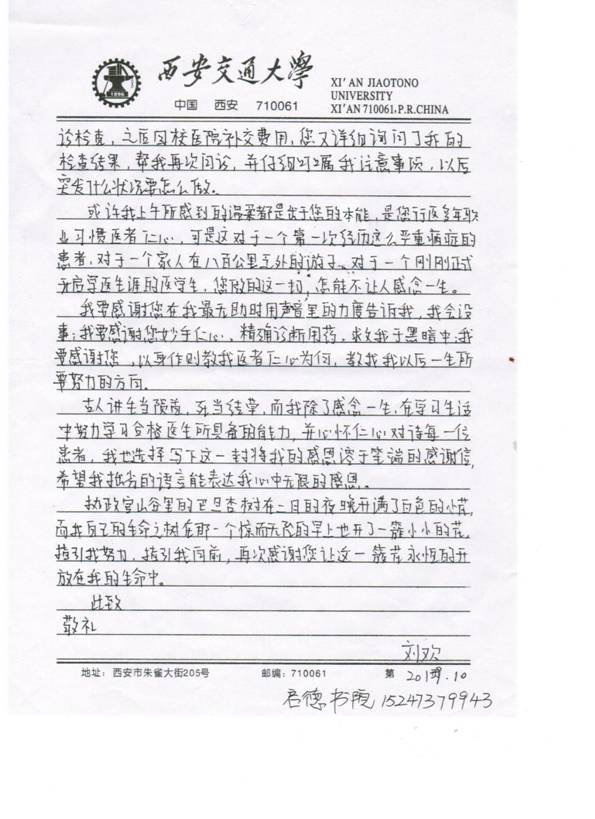 西安交通大学
中国 西安 710061
XI'AN JIAOTONO
UNIVERSITY
XI'AN 710061,P.R.CHINA
诊检查，之后因校医院补交费用，您又详细询问了我的
检查结果，帮我再次问诊，并仔细叮嘱我注意事项，以后
突发什么状况要怎么做。
或许我上午所感到的温柔都是出于您的本能，是您行医多年职
业习惯医者仁心，可是这对于一个第一次经历这么严重病症的
患者，对于一个家人在八百公里之外的游子，对于一个刚刚正式
开启学医生涯的医学生，您做的这一切，怎能不让人感念一生。
我要感谢您在我最无助时用声音里的力度告诉我，我会没
事；我要感谢您妙手仁心、精确诊断用药，救我于黑暗中；我
要感谢您，以身作则教我医者仁心为何，教我我以后一生所
要努力的方向。
古人讲生当陨首，死当结草，而我除了感念一生，在学习生活
中努力学习合格医生所具备的能力，并心怀仁心对待每一位
患者，我也选择写下这一封将我的感恩溶于笔端的感谢信，
希望我拙劣的语言能表达我心中无限的感恩。
执政官山谷里的巴旦杏树在二日的夜晚开满了白色的小花，
而我自己的生命之树在那一个惊而无险的早上也开了一簇小小的花，
指引我努力，指引我向前，再次感谢您让这一簇花永恒的开
放在我的生命中。
此致
敬礼
刘欢
地址：西安市朱雀大街205号 邮编：710061 第
启德书院 15247379943